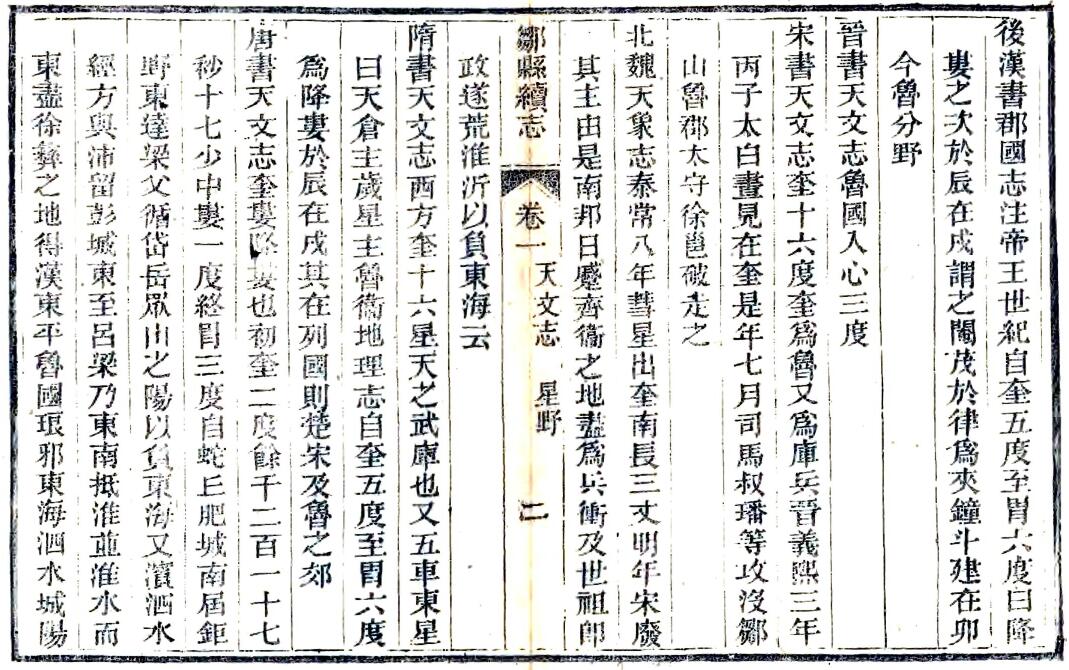 後漢書郡國志注帝王世紀自奎五度至胃六度曰降
婁之次於辰在戍謂之閹茂於律爲夾鐘斗建在卯
今魯分野
晉書天文志魯國入心三度
宋書天文志奎十六度奎爲魯又爲庫兵晉義熙三年
丙子太白晝見在奎是年七月司馬叔璠等攻沒鄒
山魯郡太守徐邕破走之
北魏天象志泰常八年彗星出奎南長三丈明年宋廢
其主由是南邦日蹙齊衞之地盡爲兵衝及世祖卽
政遂荒淮沂以負東海云
鄒縣續志
卷一
天文志
星野
二
隋書天文志西方奎十六星天之武庫也又五車東星
曰天倉主歲星主魯衞地理志自奎五度至胃六度
爲降婁於辰在戍其在列國則楚宋及魯之郊
唐書天文志奎婁降婁也初奎二度餘千二百一十七
秒十七少中婁一度終胃三度自蛇丘肥城南屆鉅
野東達梁父循岱岳眾山之陽以負東海又濱泗水
經方與沛留彭城東至呂梁乃東南抵淮並淮水而
東盡徐彝之地得漢東平魯國琅邪東海泗水城陽